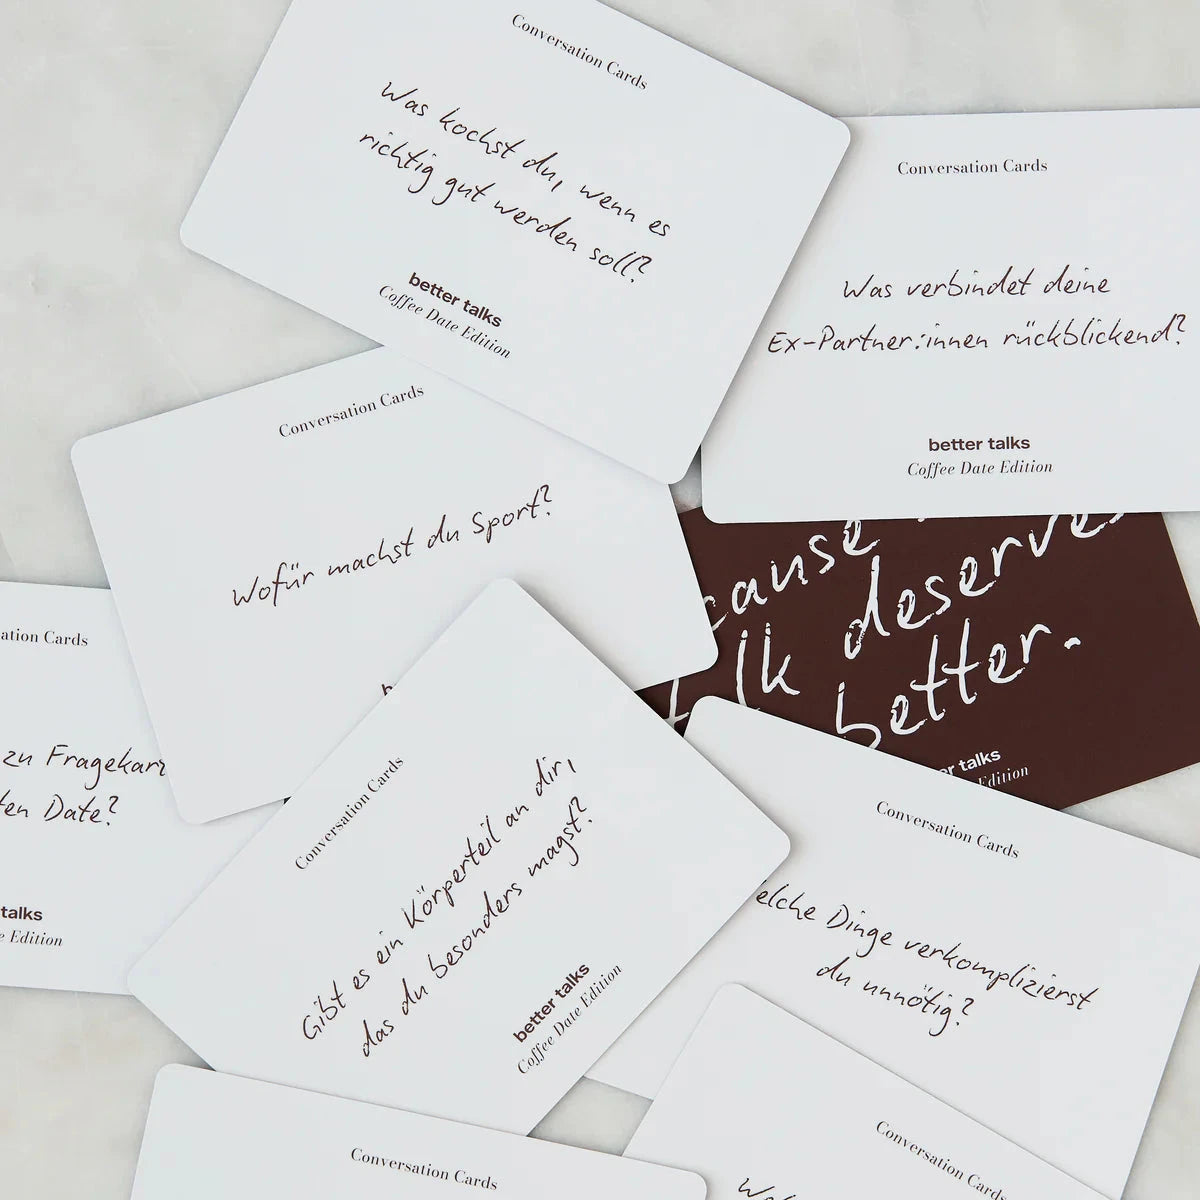 Conversation Cards
Was kochst du, wenn es
richtig gut werden soll?
better talks
Coffee Date Edition
Conversation Cards
Was verbindet deine
Ex-Partner:innen rückblickend?
better talks
Coffee Date Edition
Conversation Cards
Wofür machst du Sport?
b
cause
lk deserves
better.
er talks
dition
ation Cards
zu Fragekar
ten Date?
talks
e Edition
Conversation Cards
Gibt es ein Körperteil an dir,
das du besonders magst?
better talks
Coffee Date Edition
Conversation Cards
elche Dinge verkomplizierst
du unnötig?
Conversation Cards
Conversation Cards